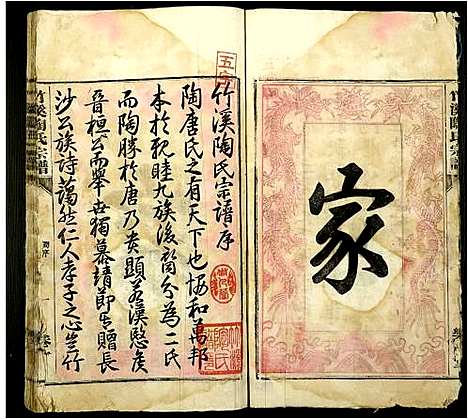 竹溪陶氏宗譜
家
五字
竹溪陶氏宗譜序
陶唐氏之有天下也協和萬邦
本於親睦九族後裔分為二氏
而陶勝於唐乃貴顯若溪慰侯
晉桓公而舉世獨慕靖節告贈長
沙公族詩藹然仁人孝子之心生竹
竹溪陶氏宗譜